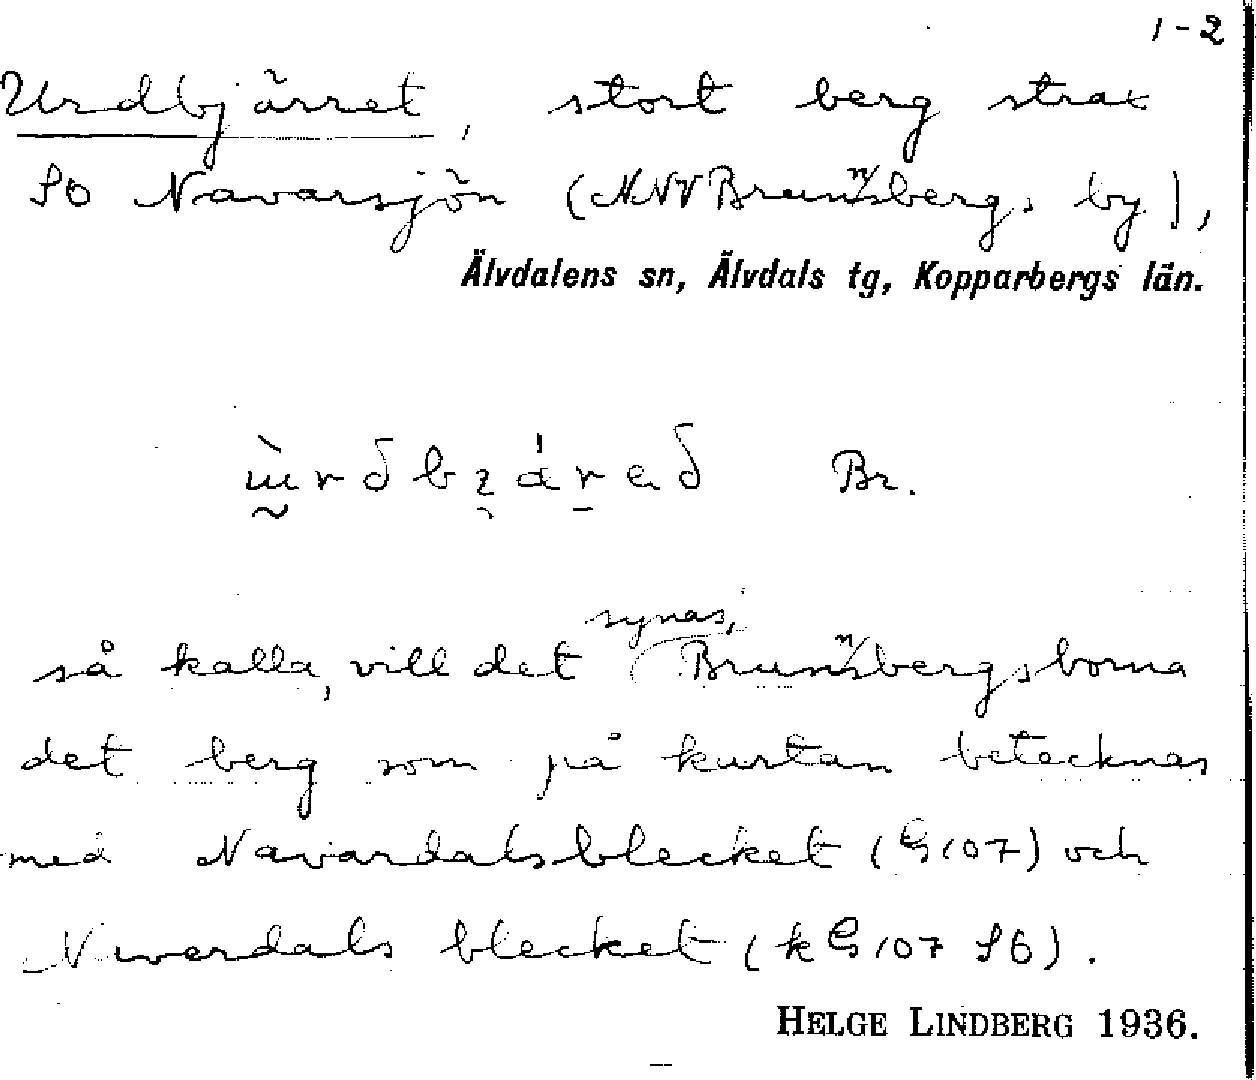 1-2
Urdbjärret, stort berg strax
SO Navarsjön (NNV Brunnsbergs by),
Älvdalens sn, Älvdals tg, Kopparbergs län.
Br.
synas,
så kalla, vill det Brunnsbergsborna
det berg som på kartan betecknas
med Navardalsblecket (G107) och
Navardals blecket (k G107 SO).
HELGE LINDBERG 1936.